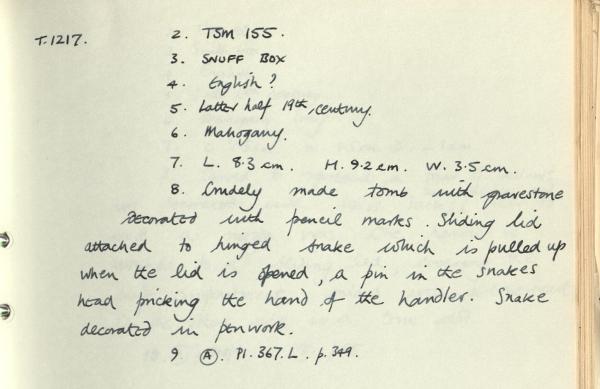 T.1217. 2. TSM 155.
3. SNUFF BOX
4. English?
5. Latter half 19th, century.
6. Mahogany.
7. L. 8.3 cm. H. 9.2 cm. W. 3.5 cm.
8. Crudely made tomb with gravestone
decorated with pencil marks. Sliding lid
attached to hinged snake which is pulled up
when the lid is opened, a pin in the snakes
head pricking the hand of the handler. Snake
decorated in penwork.
9. A. Pl. 367. L. p. 349.